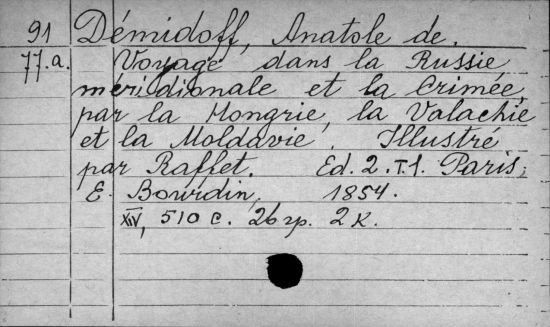 91 Démidoff, Anatole de.
77.a. Voyage dans la Russie
méridionale et la Crimée,
par la Hongrie, la Valachie
et la Moldavie. Illustré
par Raffet. Ed. 2. T.1. Paris,
E. Bourdin, 1854.
XIV, 510 c. 26 гр. 2 к.